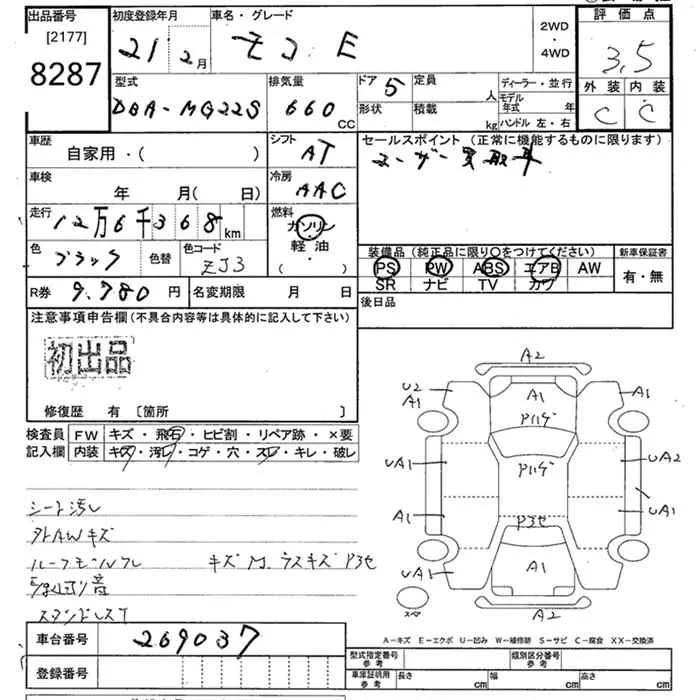 出品番号
[2177]
8287
初度登録年月
21 2月
車名・グレード
モコ E
2WD
・
4WD
評価点
3.5
外装 内装
C C
型式
DBA-MG22S
排気量
660 CC
ドア 5
形状
定員 人
積載 kg
ディーラー・並行
モデル年式 年
ハンドル 左・右
車歴
自家用・( )
シフト
AT
セールスポイント (正常に機能するものに限ります)
ユーザー買取車
車検
年 月( 日)
冷房
AAC
走行
12万6千368km
燃料
ガソリン
・
軽油
( )
色
ブラック
色替
色コード
ZJ3
装備品 (純正品に限り○をつけてください)
PS PW ABS エアB AW
SR ナビ TV カワ
新車保証書
有・無
R券 9.780 円
名変期限 月 日
後日品
注意事項申告欄 (不具合内容等は具体的に記入して下さい)
初出品
修復歴 有 [箇所 ]
検査員
記入欄
FW キズ・飛石・ヒビ割・リペア跡・×要
内装 キズ・汚レ・コゲ・穴・スレ・キレ・破レ
シート汚レ
外AWキズ
キズ
スタンドレスT
A2
U2
A1
A1
A1
Pハゲ
UA1
Pハゲ
UA2
A1
UA1
UA1
A1
A2
スペア
A-キズ E-エクボ U-凹み W-補修跡 S-サビ C-腐食 XX-交換済
車台番号 269037
登録番号
型式指定番号
参考
類別区分番号
参考
車庫証明用
参考
長さ cm
幅 cm
高さ cm